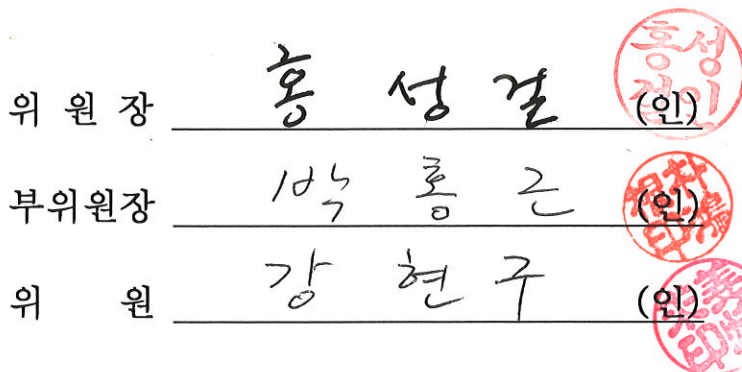 위 원 장 홍 성 걸 (인)
부위원장 박 홍 근 (인)
위 원 강 현 구 (인)